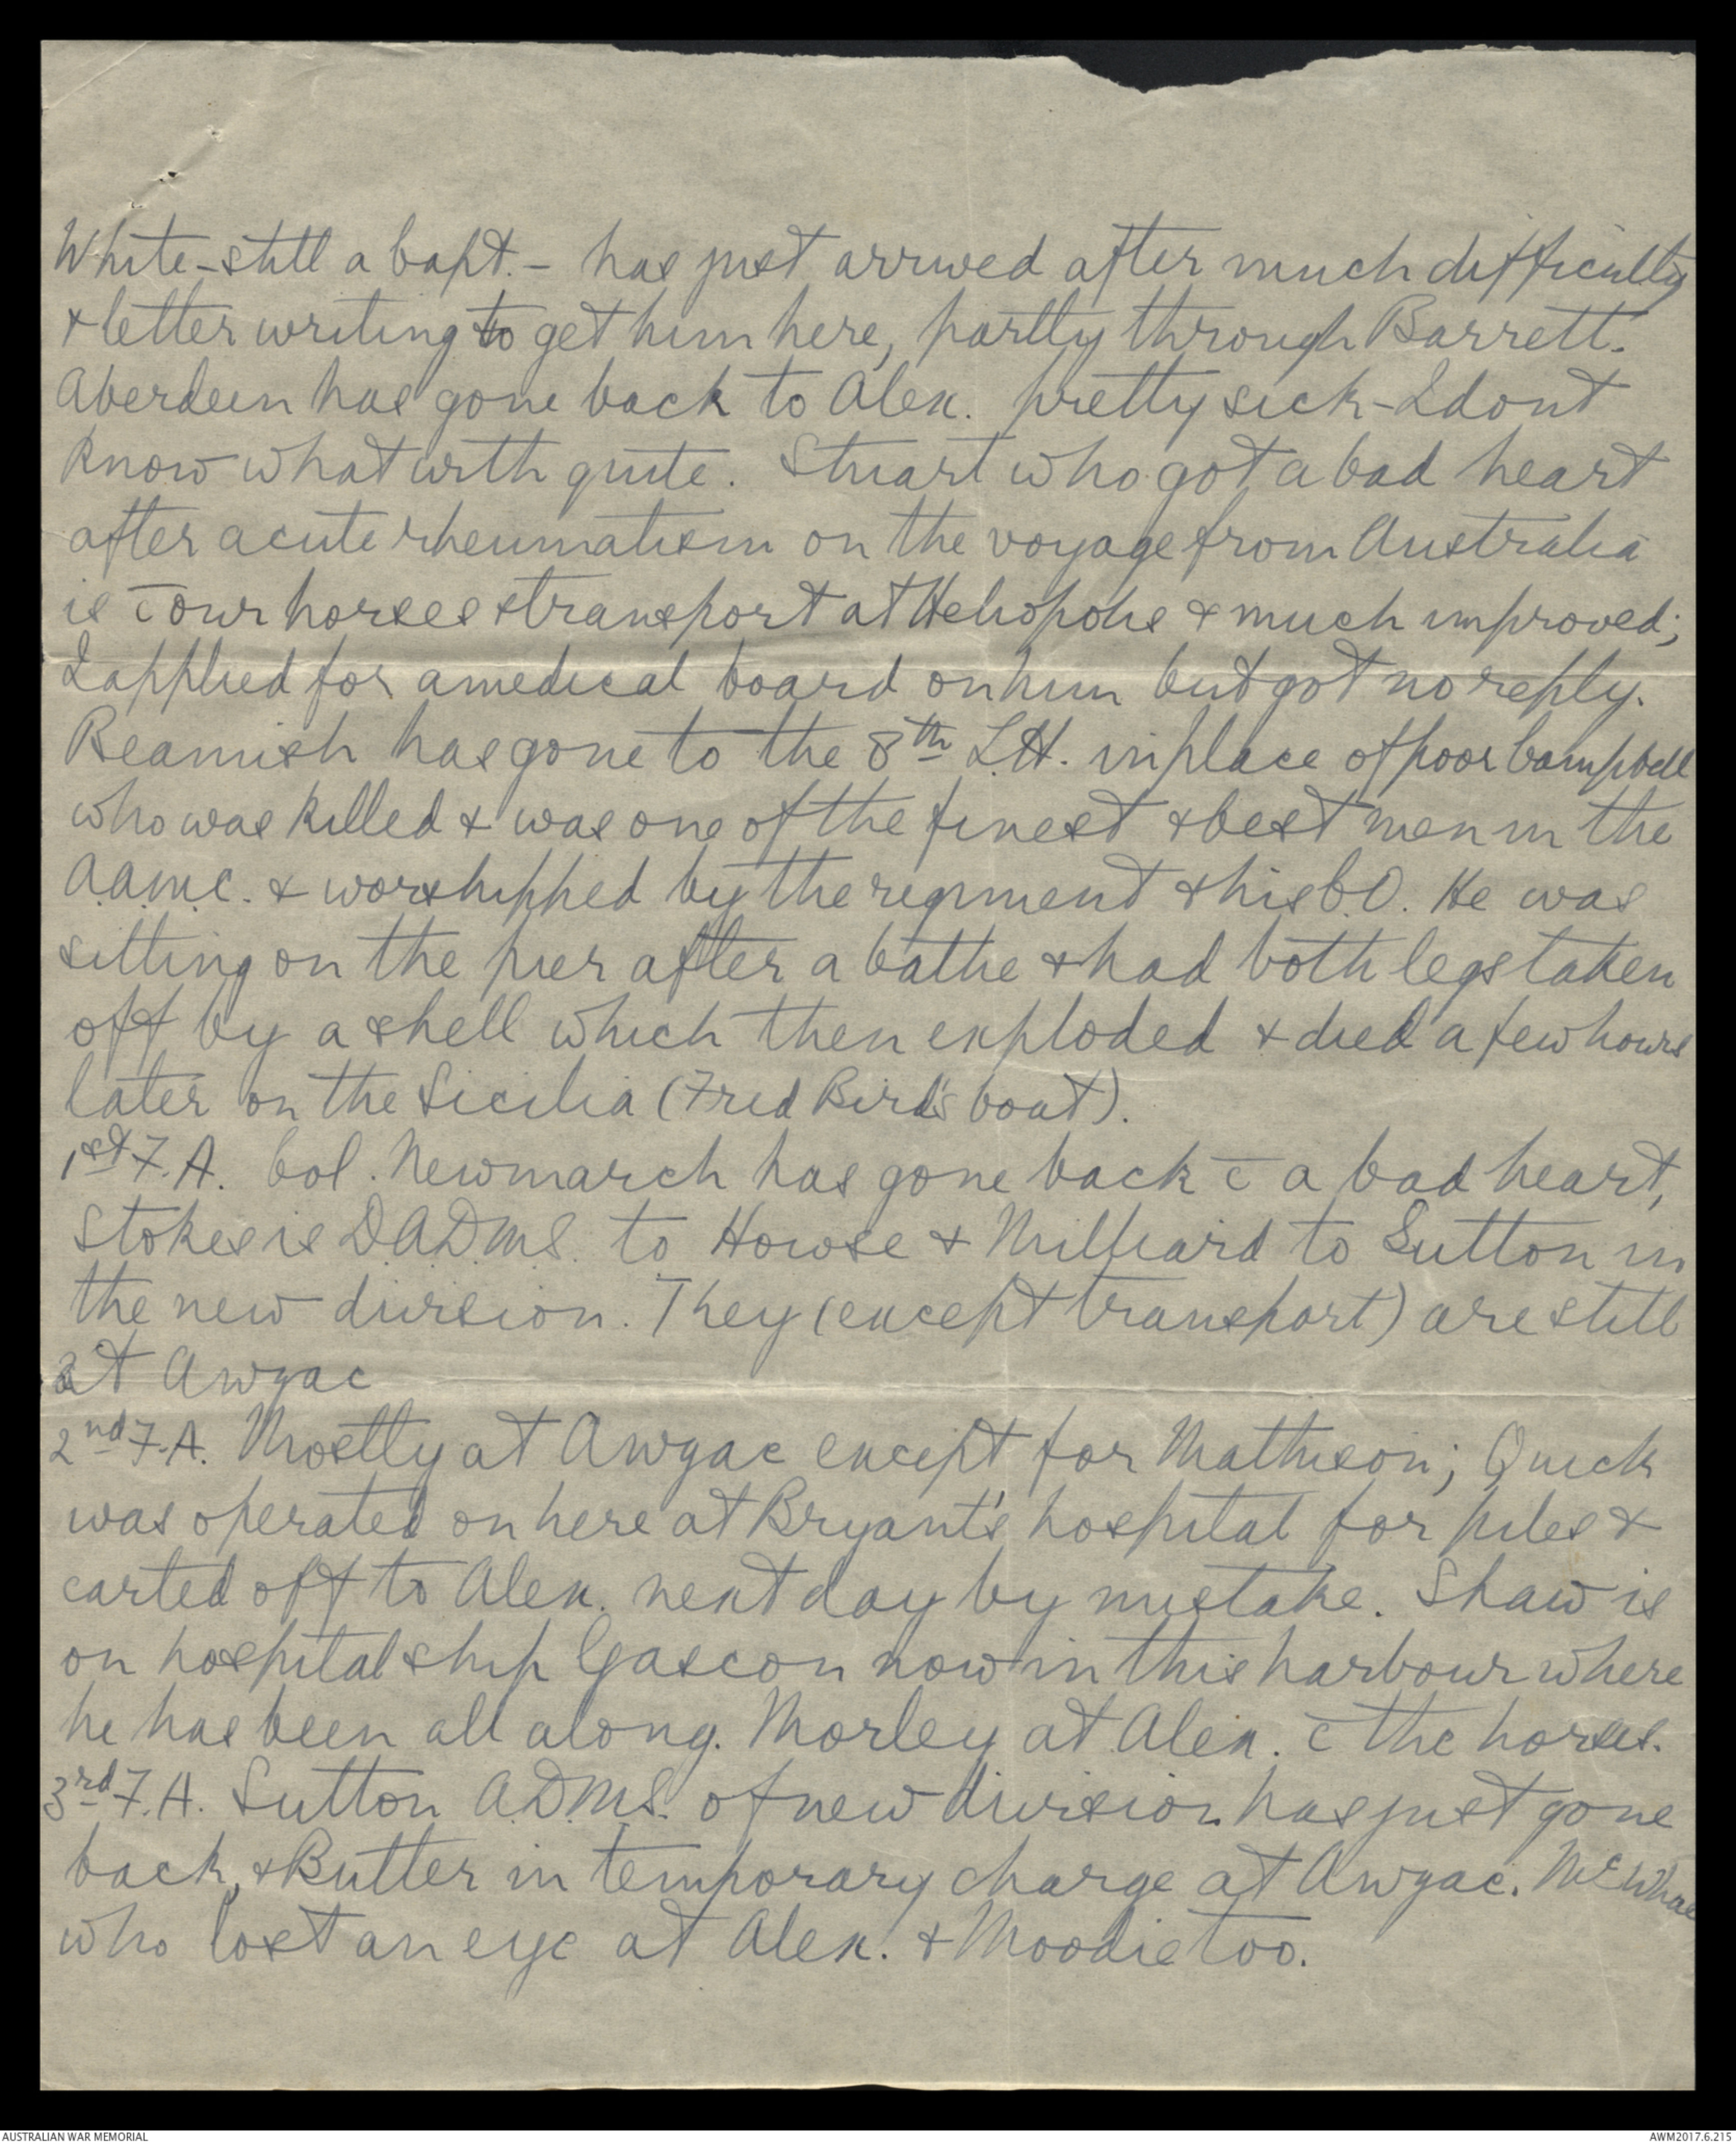 White - still a Capt. - has just arrived after much difficulty
& letter writing to get him here, partly through Barrett.
Aberdeen has gone back to Alex. pretty sick - I dont
know what with quite. Stuart who got a bad heart
after acute rheumatism on the voyage from Australia
is c̄ our horses & transport at Heliopolis & much improved;
I applied for a medical board on him but got no reply.
Beamish has gone to the 8th L.H. in place of poor Campbell
who was killed & was one of the finest & best men in the
A.A.M.C. & worshipped by the regiment & his C.O. He was
sitting on the pier after a bathe & had both legs taken
off by a shell which then exploded & died a few hours
later on the Sicilia (Fred Bird's boat).
1st F.A. Col. Newmarch has gone back c̄ a bad heart,
Stokes is D.A.D.M.S. to Howse & Millard to Sutton in
the new division. They (except transport) are still
at Anzac
2nd F.A. Mostly at Anzac except for Mathison; Quick
was operated on here at Bryant's hospital for piles &
carted off to Alex. next day by mistake. Shaw is
on hospital ship Gascon now in this harbour where
he has been all along. Morley at Alex. c̄ the horses.
3rd F.A. Sutton A.D.M.S. of new division has just gone
back, & Butler in temporary charge at Anzac. McWhae
who lost an eye at Alex. & Moodie too.
AUSTRALIAN WAR MEMORIAL
AWM2017.6.215